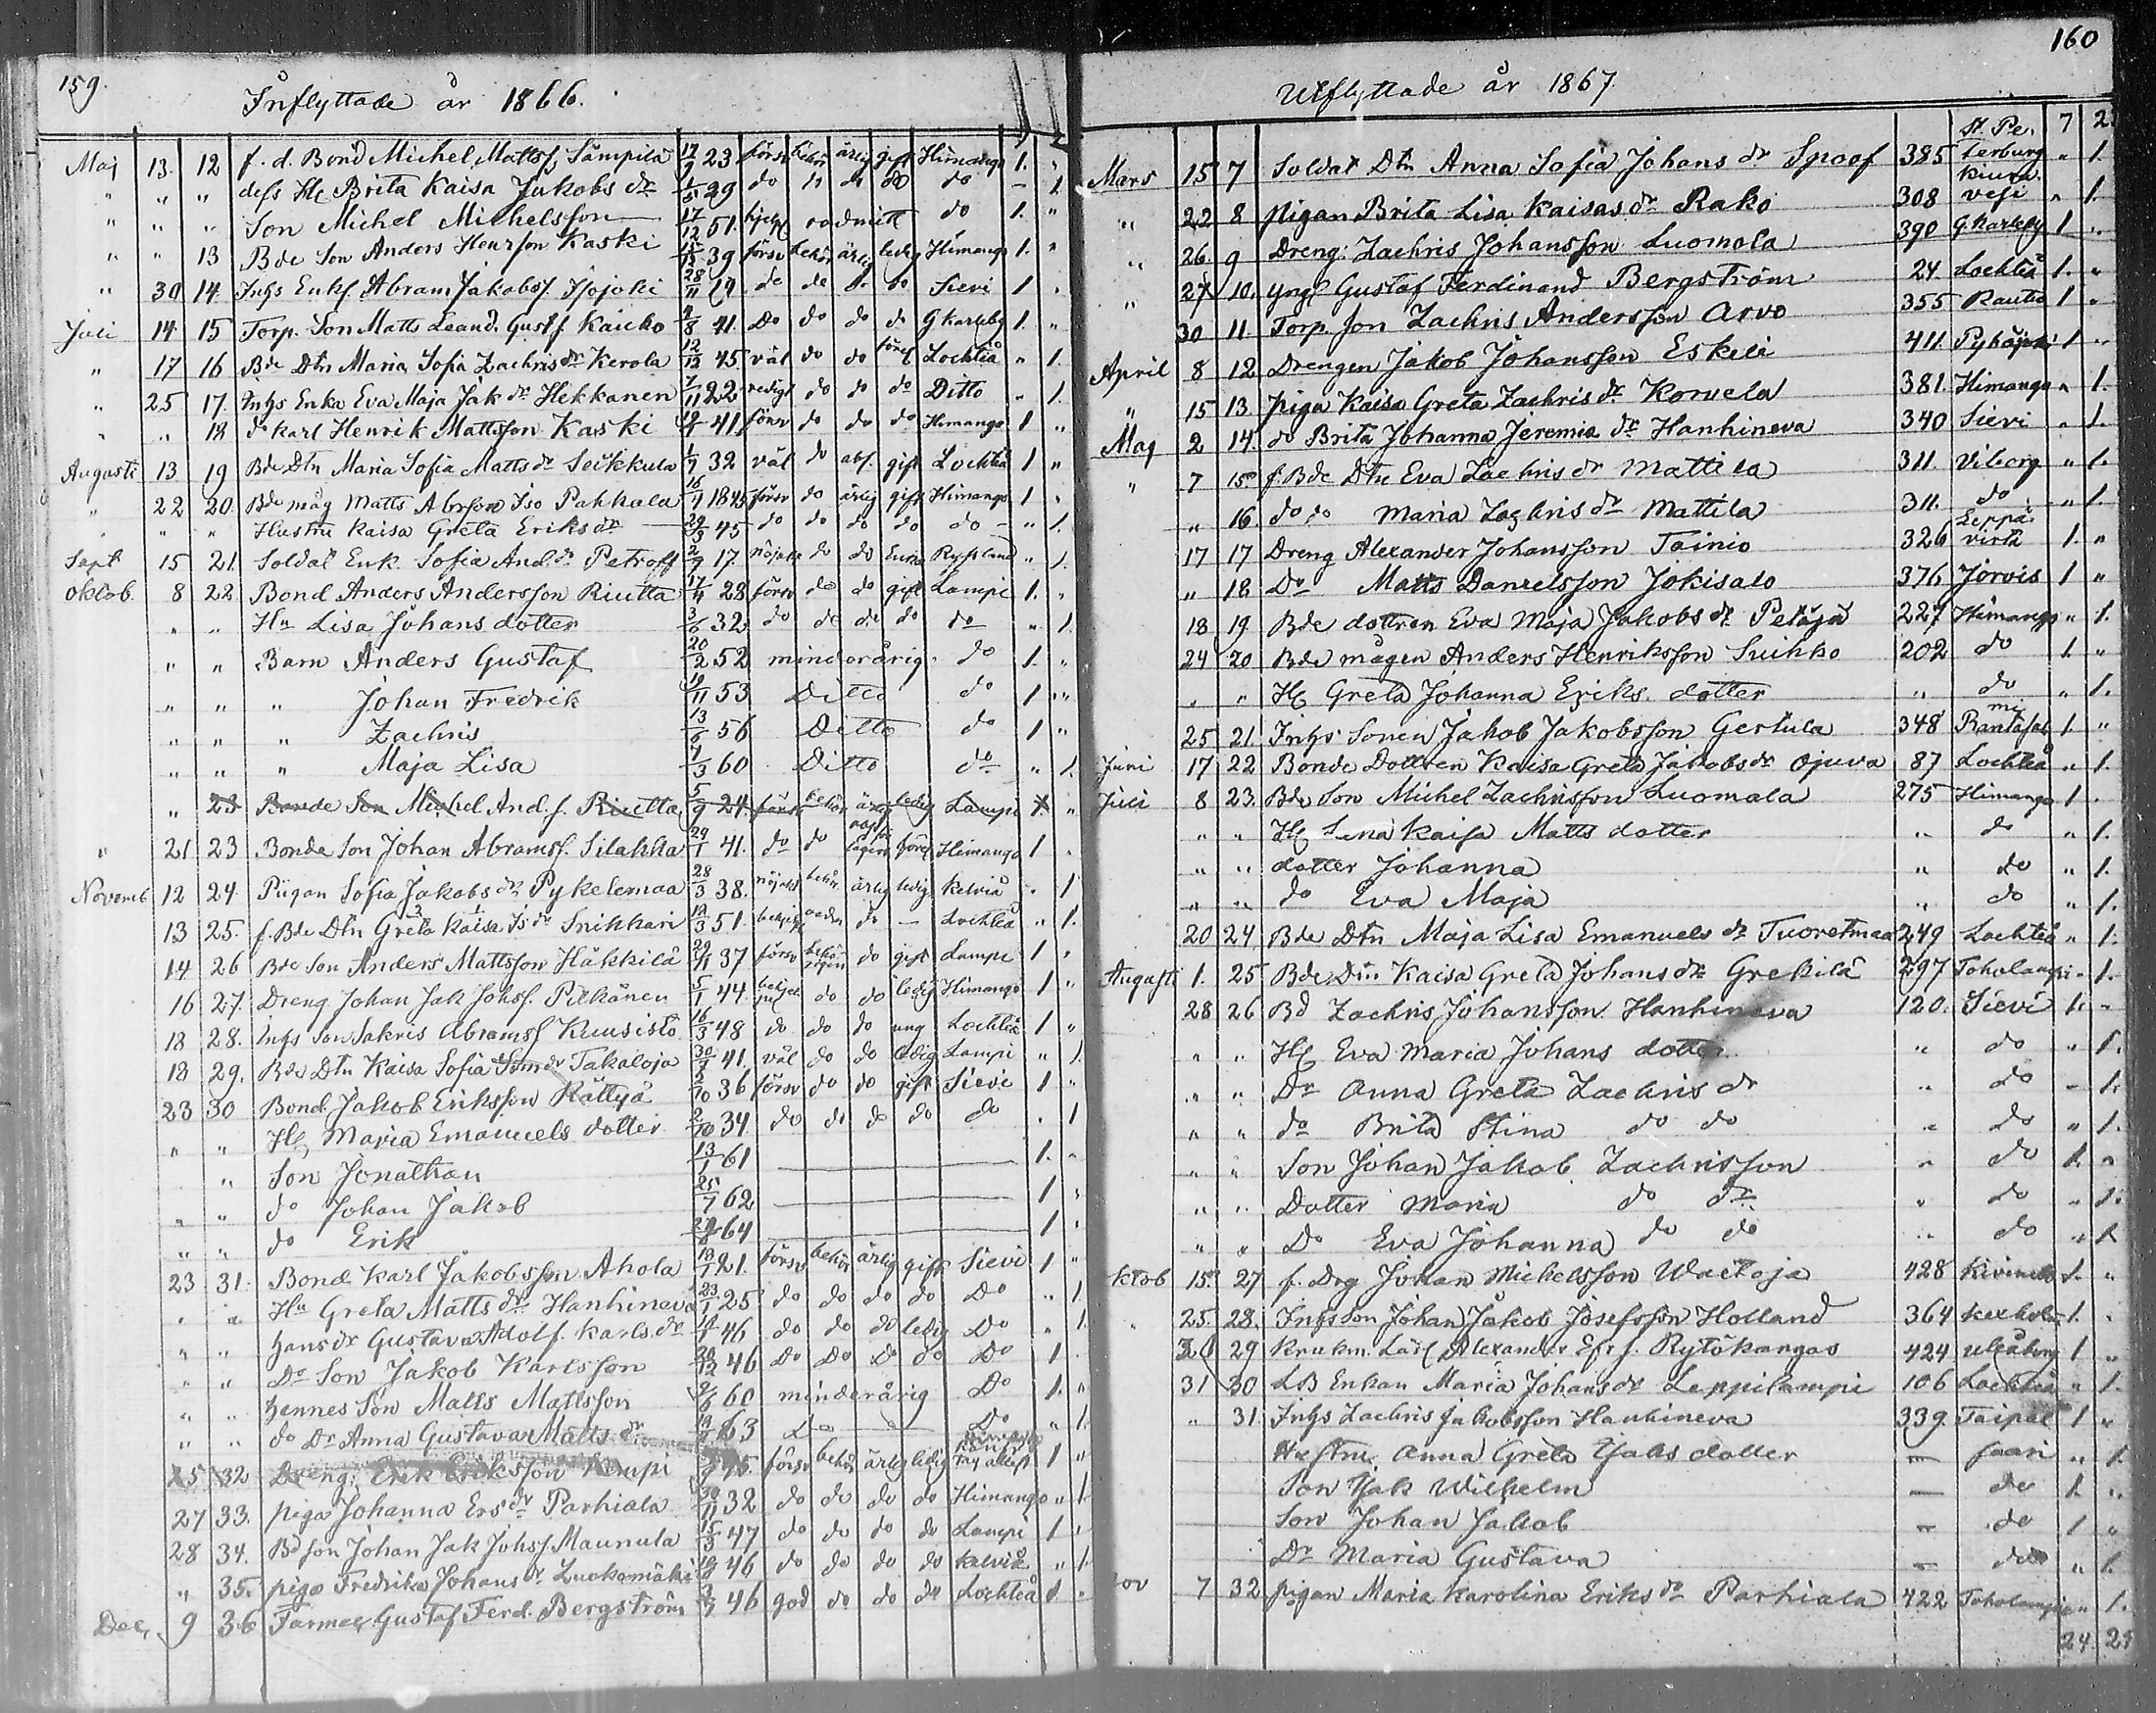 159.
Inflyttade år 1866.
Maj 13. 12 f. d. Bond Michel Mattsf. Sämpilä 17/9 23 försv behör ärlig gift Himango 1. "
" " " defs H. Brita Kaisa Jakobs dr 1/5 29 do do do do do - 1.
" " " Son Michel Michelsson 17/12 51. oadmitt do 1. "
" " 13 Bde Son Anders Henrson Kaski 15/12 39 försv behör ärlig ledig Himango 1. "
" 30 14. Inhs Enkl Abram Jakobsf. 28/11 19 do do do do Sievi 1 "
Juli 14 15 Torp. Son Matts Leand. Gustf Kaicko 4/8 41. Do do do do G Karleby 1. "
" 17 16 Bde Dtn Maria Sofia Zachris dr Kerola 12/12 45 väl do do Lochteå " 1.
" 25 17. Inhs Enka Eva Maja Jak dr Hekkanen 7/11 22 redigt do do do Ditto " 1.
" " 18 do Karl Henrik Mattsson Kaski 19/7 41. försv do do do Himango 1 "
Augusti 13 19 Bde Dtn Maria Sofia Matts dr Seikkula 1/7 32 väl do abs. gift Lochteå 1 "
" 22 20. Bde måg Matts Abrson Iso Pahkala 16/7 1845 försv do ärlig gift Himango 1 "
" " " Hustru Kaisa Greta Eriks dr 29/3 45 do do do do do - " 1.
Sept 15 21. Soldat Enk. Sofia And. dr Petroff 2/9 17. nöjakt do do Enka Ryssland " 1.
Oktob. 8 22 Bond Anders Andersson Riutta 17/4 28 försv do do gift Lampi 1. "
" " Hu Lisa Johans dotter 3/6 32 do do do do do " 1.
" " Barn Anders Gustaf 20/2 52 minderårig do 1. "
" " " Johan Fredrik 19/11 53 Ditto do 1 "
" " " Zachris 13/6 56 Ditto do 1 "
" " " Maja Lisa 7/3 60 Ditto do " 1.
" 23 Bonde Son Michel And. s. Riutta 5/9 24. försv behör ärlig ledig Lampi 1. "
" 21 23 Bonde Son Johan Abramsf. Silakka 29/1 41. do do Himango 1 "
Novemb 12 24 Piigan Sofia Jakobs dr Pykelemaa 28/3 38. nöjakt behör ärlig ledig Kelviå " 1
13 25. f. Bde Dtn Greta Kaisa Is dr Snikkari 12/3 51. do — Lochteå " 1.
14 26 Bde Son Anders Mattsson Häkkilä 29/11 37 försv do gift Lampi 1 "
16 27. Dreng Johan Jak Johsf. Pitkänen 5/1 44 do do ledig Himango 1 "
18 28. Inhs Son Sakris Abramsf Kuusisto 16/3 48 do do do ung Lochteå 1 "
18 29. Bde Dtn Kaisa Sofia Takaloja 30/7 41. väl do do ledig Lampi " 1.
23 30 Bond. Jakob Eriksson Rättyä 5/10 36 försv do do gift Sievi 1 "
" " H. Maria Emanuels dotter 2/10 34 do do do do do " 1
" Son Jonathan 13/1 61 1. "
" " do Johan Jakob 25/7 62 1 "
" " do Erik 64 1 "
23 31. Bond Karl Jakobsson Ahola 18/1 21. försv behör ärlig gift Sievi 1 "
" " Hu Greta Matts dr Hanhineva 23/1 25 do do do do Do " 1
" " Hans dr Gustava Adolf. Karls dr 46 do do do ledig Do " 1.
" " Do Son Jakob Karlsson 20/12 46 Do Do Do do Do 1.
" " Hennes Son Matts Mattsson 9/6 60 minderårig Do 1. "
" " do Dr Anna Gustava Matts dr 63 Do Do " 1.
25 32 Dreng: Erik Eriksson Kempi 45. försv behör ärlig ledig 1 "
27 33. piga Johanna Ers dr Parhiala 30/11 32 do do do do Himango " 1.
28 34. Bd son Johan Jak Johsf Maunula 15/3 47 do do do do Lampi 1 "
" 35. piga Fredrika Johans dr Luokamäki 46 do do do do Kelviå " 1.
Dec. 9 36 Farmac Gustaf Ferd. Bergström 3/7 46 god do do do Lochteå 1. "
160
Utflyttade år 1867.
7 2.
Mars 15 7 Soldat Dtn Anna Sofia Johans dr Spoof 385 St. Peterburg " 1.
" 22 8 pigan Brita Lisa Kaisas dr Rako 308 Kiuruvesi " 1.
" 26. 9 Dreng: Zachris Johansson Luomala 390 G. Karleby 1 "
" 27 10. yngl Gustaf Ferdinand Bergström 24. Lochteå 1. "
30 11. Torp. Son Zachris Andersson Arvo 355 Rautio 1 "
April 8 12 Drengen Jakob Johansson Eskeli 411. Pyhäjoki 1 "
" 15 13 piga Kaisa Greta Zachris dr Korvela 381. Himango " 1.
Maj 2 14. do Brita Johanna Jeremia dr Hanhineva 340 Sievi " 1.
" 7 15. f. Bde Dtn Eva Zachris dr Mattila 311. Viborg " 1.
" 16. do do Maria Zachris dr Mattila 311. do " 1.
17 17 Dreng Alexander Johansson Tainio 326 Leppävirta 1. "
" 18 Do Matts Danielsson Jokisalo 376 Jorois 1 "
18 19 Bde dottren Eva Maja Jakobs dr Petäjä 227 Himango " 1.
24 20 Bde mågen Anders Henriksson Suihko 202 do 1. "
" " H. Greta Johanna Eriks. dotter " do " 1.
25 21. Inhs Sonen Jakob Jakobsson Gertula 348 Rantasalmi 1 "
Juni 17 22 Bonde Dottren Kaisa Greta Jakobs dr Ojuva 87 Lochteå " 1.
Juli 8 23. Bde Son Michel Zachrisson Luomala 275 Himango 1 "
" " H. Lena Kaisa Matts dotter " do " 1.
" " dotter Johanna " do " 1.
" " do Eva Maja " do " 1.
20 24 Bde Dtn Maja Lisa Emanuels dr Tuoretmaa 249 Lochteå " 1.
Augusti 1. 25 Bde Dtn Kaisa Greta Johans dr Grekilä 297 Toholampi " 1.
28 26 Bd Zachris Johansson Hanhineva 120. Sievi 1. "
" " H. Eva Maria Johans dotter " do " 1.
" " Dr Anna Greta Zachris dr " do " 1.
" " do Brita Stina do do " do " 1.
" " Son Johan Jakob Zachrisson " do 1. "
" " Dotter Maria do dr " do " 1.
" " Do Eva Johanna do do " do " 1.
ktob 15. 27 f. Drg Johan Michelsson Waltoja 428 1. "
" 25. 28. Inhs Son Johan Jakob Josefsson Holland 364 Kexholm 1. "
26 29 Krukm. Lärl Alexander Efr. s. Rytökangas 424 Uleåborg 1 "
31 30 LB Enkan Maria Johans dr Leppilampi 106 Lochteå " 1.
" 31. Inhs Zachris Jakobsson Hanhineva 339. Taipal 1 "
Hustru. Anna Greta Isaks dotter — saari " 1.
Son Isak Wilhelm — do 1. "
Son Johan Jakob — do 1 "
Dr Maria Gustava — do " 1.
ov 7 32 pigan Maria Karolina Eriks dr Parhiala 422 Toholampi " 1.
24. 29